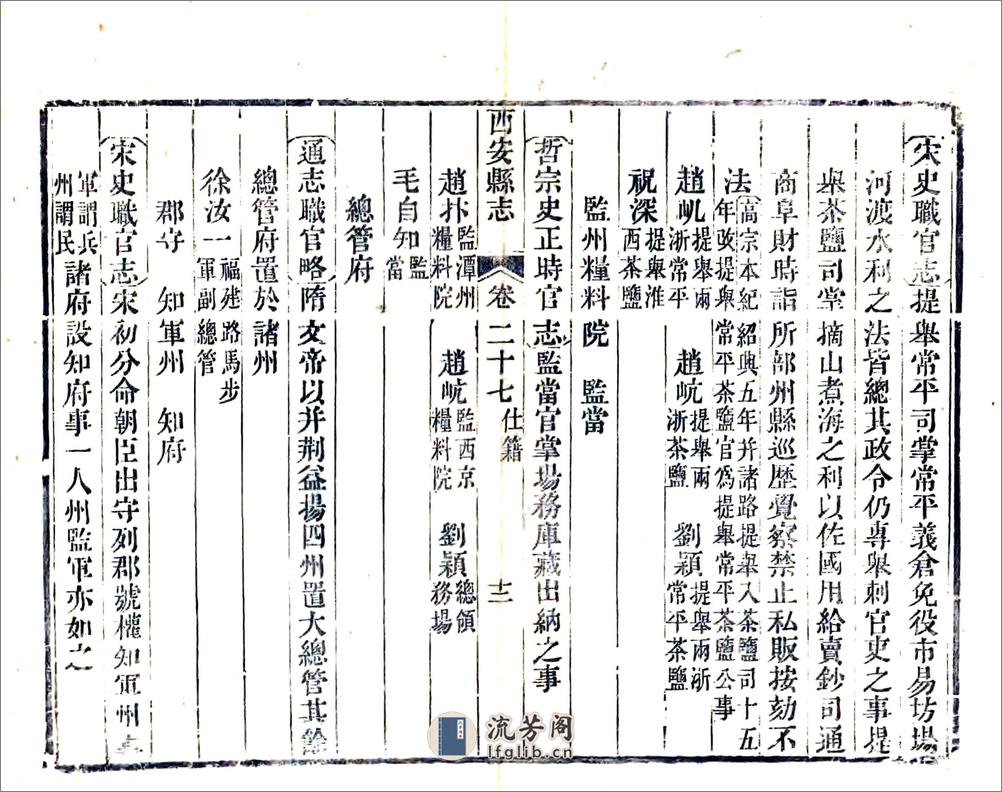 宋史職官志提舉常平司掌常平義倉免役市易坊場
河渡水利之法皆總其政令仍專舉刺官吏之事提
舉茶鹽司掌摘山煮海之利以佐國用給賣鈔司通
商阜財時詣所部州縣巡歷覺察禁止私販按劾不
法高宗本紀紹興五年并諸路提舉入茶鹽司十五
年改提舉常平茶鹽官爲提舉常平茶鹽公事
趙屼提舉兩浙常平 趙岏提舉兩浙茶鹽 劉頴提舉兩浙常平茶鹽
祝深提舉淮西茶鹽
監州糧料院 監當
哲宗史正時官志監當官掌場務庫藏出納之事
西安縣志 卷二十七 仕籍 十二
趙抃監潭州糧料院 趙屼監西京糧料院 劉頴總領務場
毛自知監當
總管府
通志職官略隋文帝以并荆益揚四州置大總管其餘
總管府置於諸州
徐汝一福建路馬步軍副總管
郡守 知軍州 知府
宋史職官志宋初分命朝臣出守列郡號權知軍州事
軍謂兵州謂民諸府設知府事一人州監軍亦如之
流芳阁
lfglib.cn